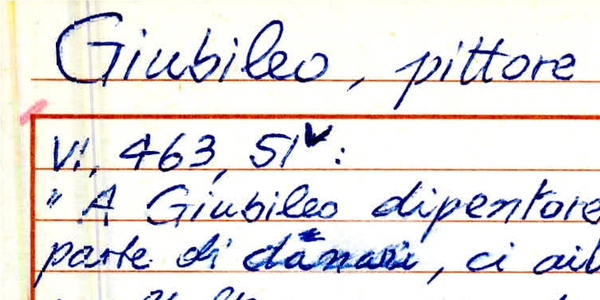 Giubileo, pittore
VI, 463, 51v:
" A Giubileo dipentore
parte di danari, ci